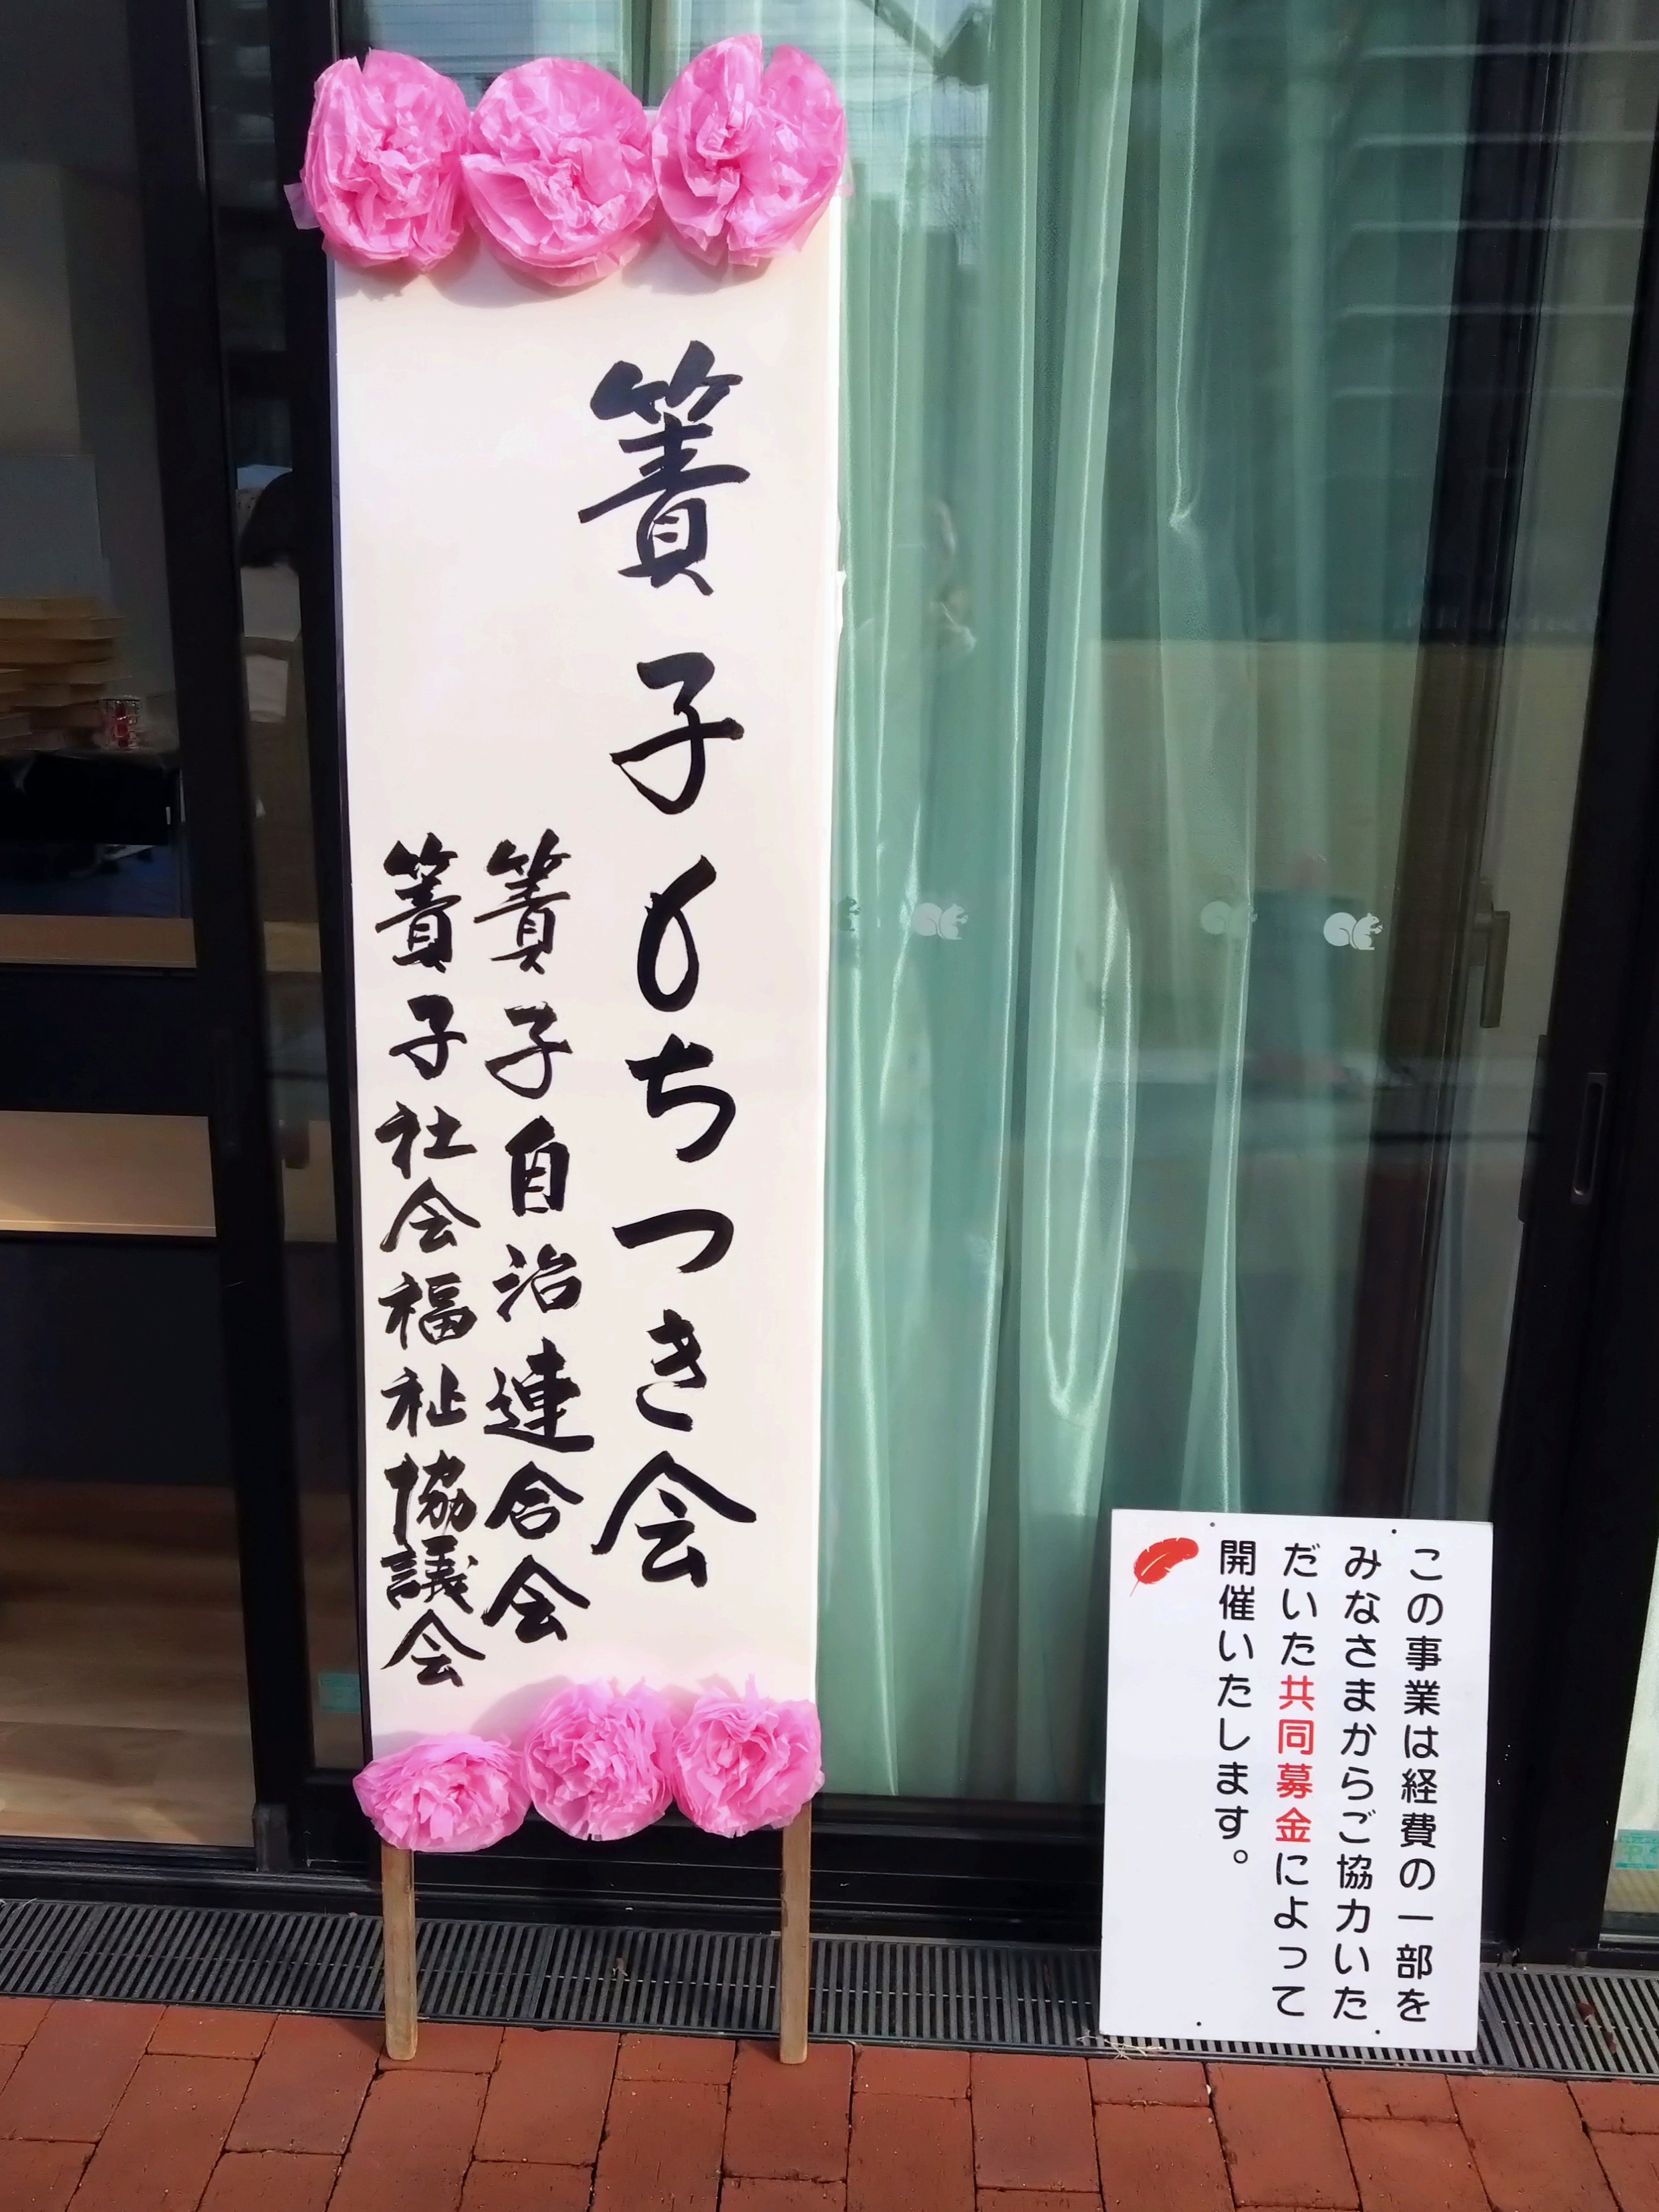 簀子もちつき会
簀子自治連合会
簀子社会福祉協議会
この事業は経費の一部を
みなさまからご協力いた
だいた共同募金によって
開催いたします。